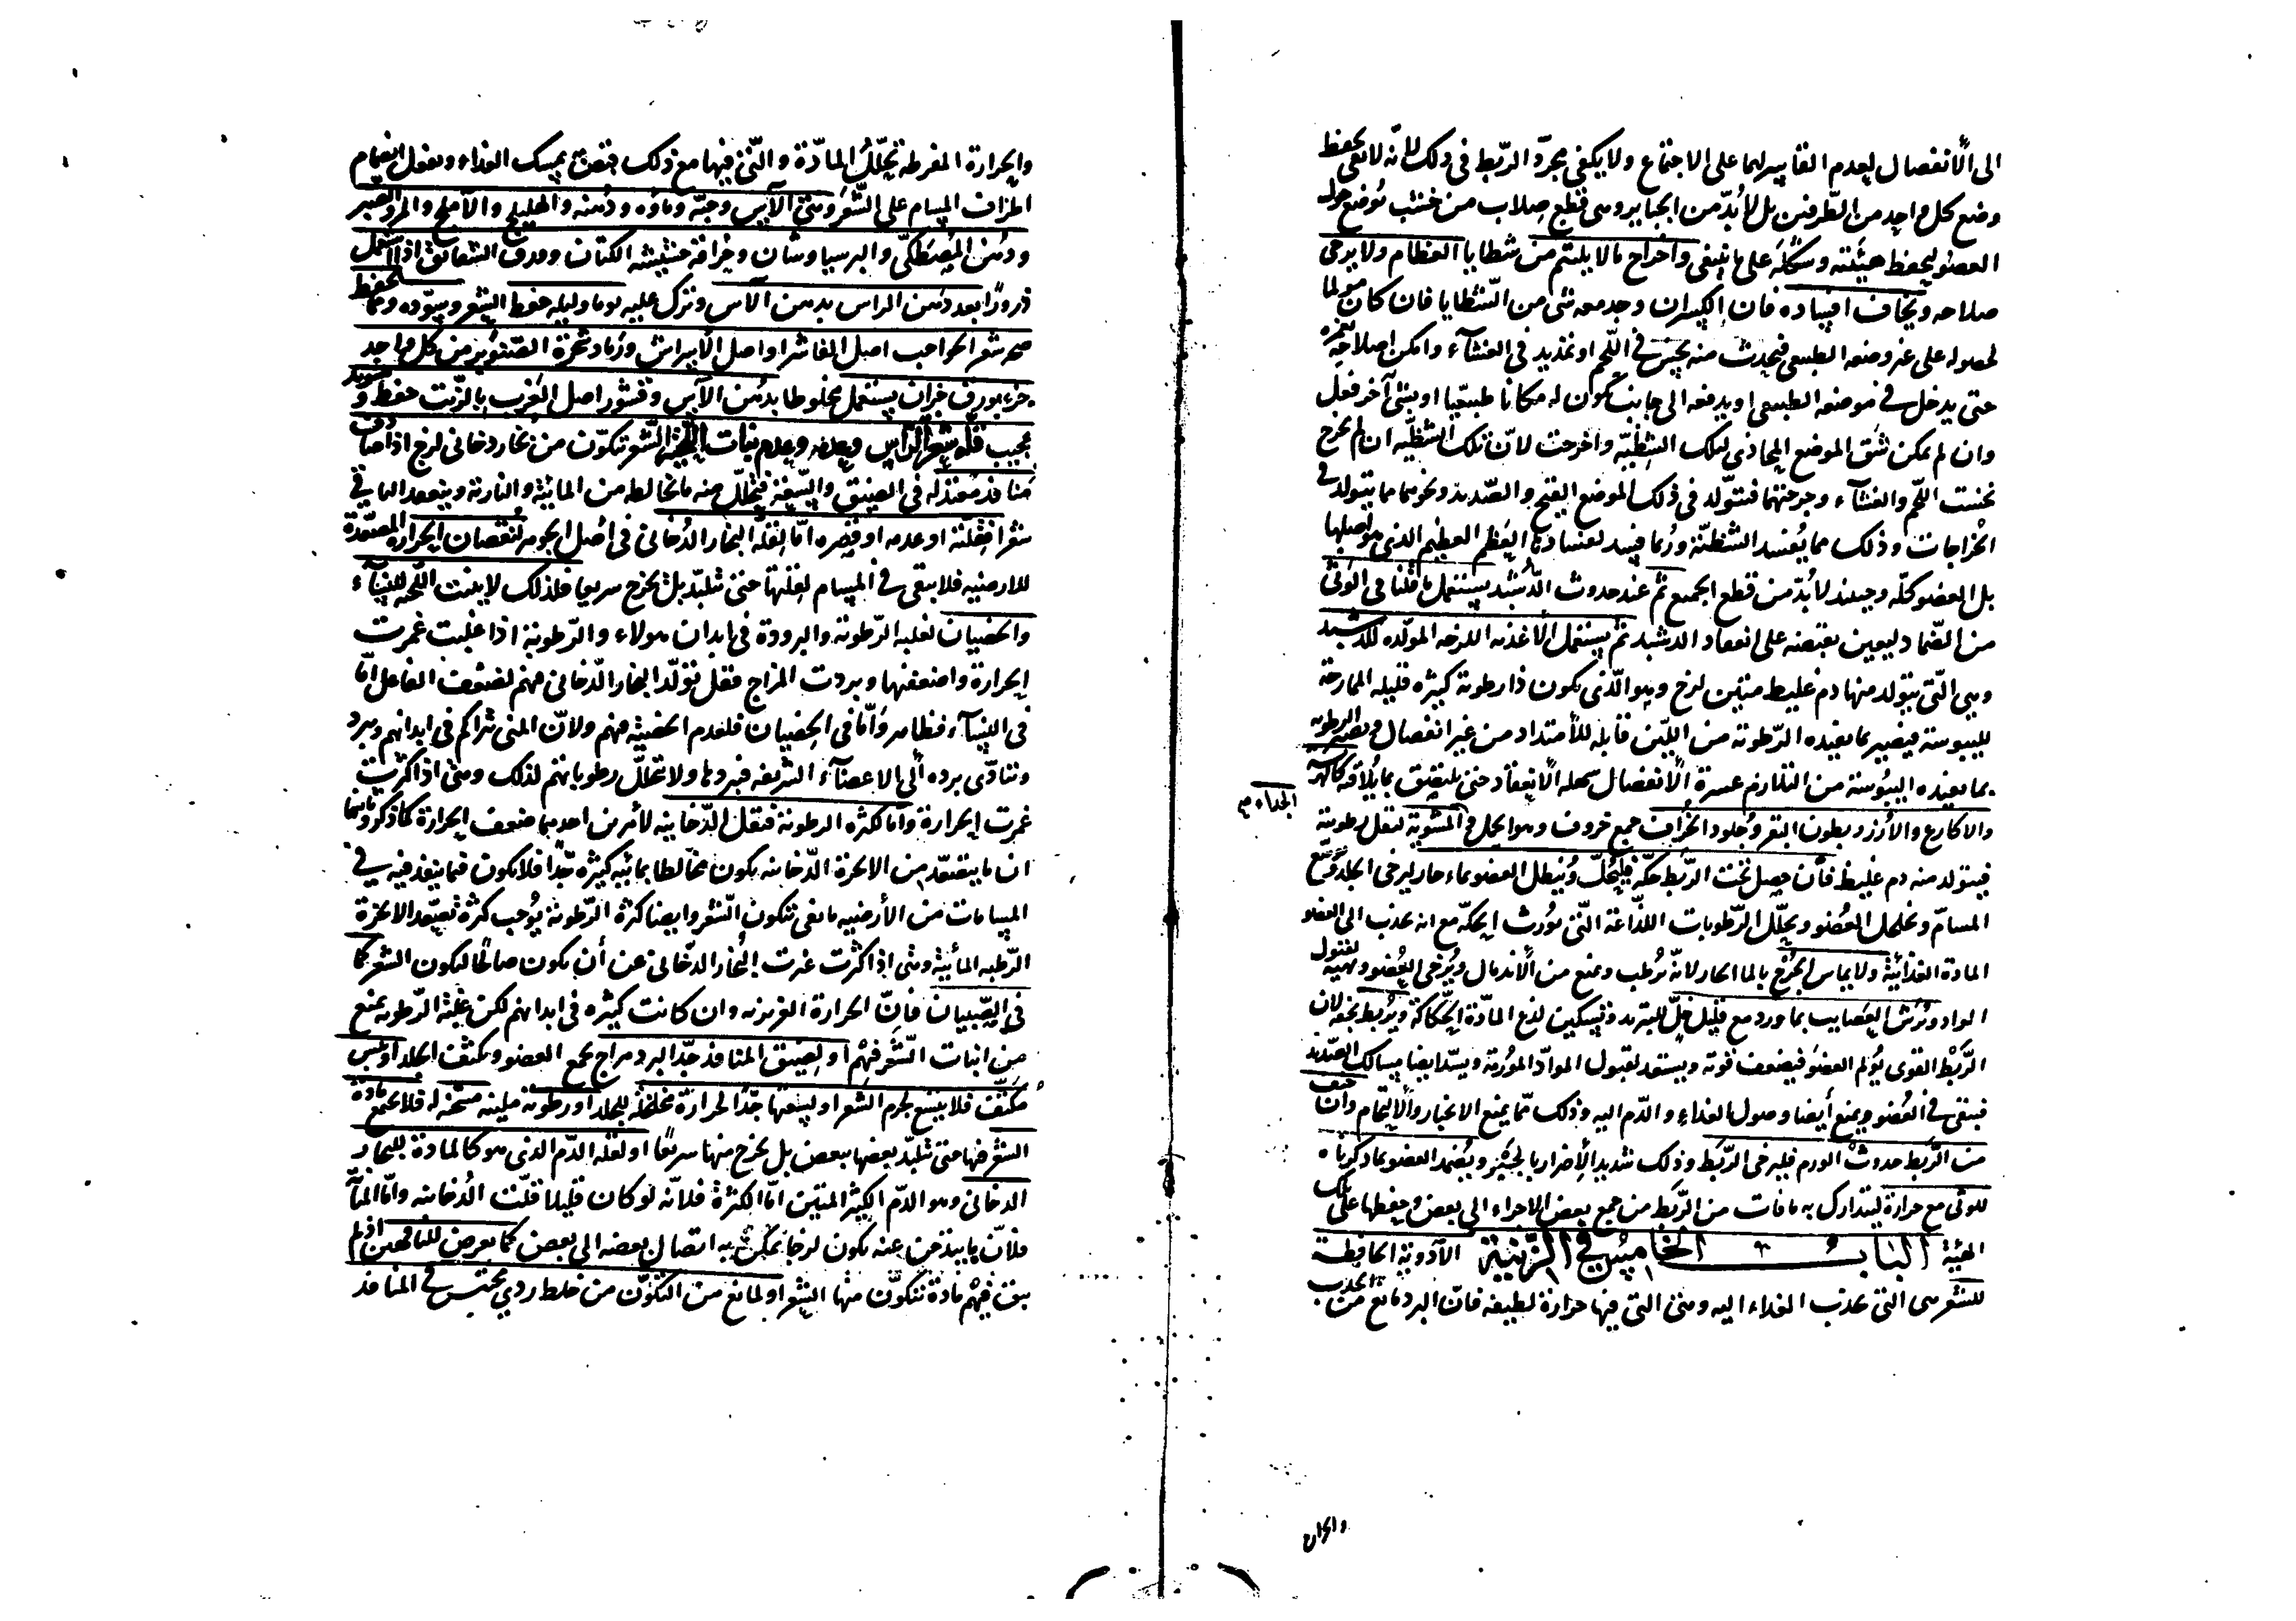 الى الانفصال لعدم القاسر لهما على الاجتماع ولا يكفى مجرد الربط فى ذلك لانه لا يفى بحفظ
وضع كل واحد من الطرفين بل لا بد من الجبائر وهى قطع صلاب من خشب توضع حول
العضو ليحفظ هيئته وشكله على ما ينبغى واخراج ما لا يلتئم من شظايا العظام ولا يرجى
صلاحه ويخاف افساده فان الكسر ان وجد معه شئ من الشظايا فان كان مولما
لحصوله على غير وضعه الطبيعى فيحدث منه نخس فى اللحم او تمديد فى الغشآء وامكن اصلاحه بغمزه
حتى يدخل فى موضعه الطبيعى او يدفعه الى جانب يكون له مكانا طبيعيا او بشئ آخر فعل
وان لم يمكن شق الموضع المحاذى لتلك الشظية واخرجت لان تلك الشظية ان لم تخرج
نخست اللحم والغشآء وجرحتهما فتتولد فى ذلك الموضع القيح والصديد ونحوهما مما يتولد فى
الخراجات وذلك مما يفسد الشظية وربما فسد لفسادها العظم العظيم الذى هو اصلها
بل العضو كله وحينئذ لا بد من قطع الجميع ثم عند حدوث الدشبد يستعمل ما قلنا فى الوثى
من الضماد ليعين بقبضه على انعقاد الدشبد ثم يستعمل الاغذية اللزجة المولدة للدشبد
وهى التى يتولد منها دم غليظ متين لزج وهو الذى يكون ذا رطوبة كثيرة قليلة الممازجة
لليبوسة فيصير بما تفيده الرطوبة من اللين قابلة للامتداد من غير انفصال وتصير الرطوبة
بما تفيده اليبوسة من التلازم عسرة الانفصال سهلة الانعقاد حتى يلتصق بما يلاقيه كالهريسة
والاكارع والارز وبطون البقر وجلود الخراف جمع خروف وهو الحمل فى المشوية لتقل رطوبته
الجداء م
فيتولد منه دم غليظ فان حصل تحت الربط حكة فليحل وينطل العضو بماء حار ليرخى الجلد ويوسع
المسام ويخلخل العضو ويحلل الرطوبات اللذاعة التى تورث الحكة مع انه يجذب الى العضو
المادة الغذائية ولا يماس الجرح بالما الحار لانه يرطب ويمنع من الاندمال ويرخى العضو ويهيئه لقبول
المواد وترش العصايب بماورد مع قليل خل للتبريد وتسكين لذع المادة الحكاكة ويربط بخفة لان
الربط القوى يؤلم العضو فيضعف قوته ويستعد لقبول المواد المؤرمة ويسد ايضا مسالك الصديد
فيبقى فى العضو ويمنع أيضا وصول الغذاء والدم اليه وذلك مما يمنع الانجبار والالتيام وان خيف
من الربط حدوث الورم فليرخى الربط وذلك شديد الاضرار بالجبر ويضمد العضو بما ذكرناه
للوثى مع حرارة ليتدارك به ما فات من الربط من جمع بعض الاجزاء الى بعض وحفظها على تلك
الهيئة الباب الخامس فى الزينة الادوية الحافظة
للشعر هى التى تجذب الغذاء اليه وهى التى فيها حرارة لطيفة فان البرد مانع من الجذب
والحرارة
والحرارة المفرطة تحلل المادة والتى فيها مع ذلك قبض يمسك الغذاء ويقول انضمام
اطراف المسام على الشعر وهى الآس وحبه وماؤه ودهنه والهليلج والآملج والمر والصبر
ودهن المصطكى والبرسياوشان وحراقة حشيشة الكتان وورق الشقائق اذا استعمل
ذرورا بعد دهن الراس بدهن الآس وترك عليه يوما وليلة حفظ الشعر وسوده ومما يحفظ
صحة شعر الحواجب اصل الفاشرا واصل الابيراش ورماد شجرة الصنوبر من كل واحد
جزء بورق جزان يستعمل مخلوطا بدهن الآس وقشور اصل الغرب بالزيت حفظ وتسويد
عجيب قلة شعر الراس وعدمه وعدم نبات اللحية الشعر يتكون من بخار دخانى لزج اذا صادف
منافذ معتدلة فى الضيق والسعة فيتحلل منه ما يخالطه من المائية والنارية وينعقد الباقى
شعرا فقلته او عدمه او قصره اما لقلة البخار الدخانى فى اصل الجوهر لنقصان الحرارة المصعدة
للارضية فلا يبقى فى المسام لقلتها حتى تتلبد بل يخرج سريعا فلذلك لا ينبت اللحية للنسآء
والخصيان لغلبة الرطوبة والبرودة فى ابدان هولاء والرطوبة اذا غلبت غمرت
الحرارة واضعفتها وبردت المزاج فقل تولد البخار الدخانى منهم لضعف الفاعل اما
فى النسآء فظاهر واما فى الخصيان فلعدم الخصية منهم ولان المنى تراكم فى ابدانهم وبرد
وتتادى برده الى الاعضآء الشريفة فبردها ولا تتحلل رطوباتهم لذلك ومتى اذا كثرت
غمرت الحرارة واما لكثرة الرطوبة فتقل الدخانية لامرين احدهما ضعف الحرارة كما ذكر وثانيهما
ان ما يتصعد من الابخرة الدخانية يكون مخالطا بمائية كثيرة جدا فلا يكون فيما ينفذ فيه فى
المسامات من الارضية ما يفى بتكون الشعر وايضا كثرة الرطوبة يوجب كثرة تصعد الابخرة
الرطبة المائية ومتى اذا كثرت غمرت البخار الدخانى عن أن يكون صالحا لتكون الشعر كما
فى الصبيان فان الحرارة الغريزية وان كانت كثيرة فى ابدانهم لكن غلبة الرطوبة يمنع
من انبات الشعر فيهم او لضيق المنافذ جدا لبرد مزاج يجمع العضو ويكثف الجلد او يبس
مكثف فلا يتسع لجرم الشعر او لسعتها جدا لحرارة مخلخلة للجلد او رطوبة ملينة مسخنة له فلا يجتمع مادة
الشعر فيها حتى تتلبد بعضها ببعض بل تخرج منها سريعا او لقلة الدم الذى هو كالمادة للبخار
الدخانى وهو الدم الكثير المتين اما الكثرة فلانه لو كان قليلا قلت الدخانية واما المتانة
فلان ما يتدخن عنه يكون لزجا يمكن به اتصال بعضه الى بعض كما يعرض للناقهين اذ لم
يبق فيهم مادة تتكون منها الشعر او لمانع من التكون من خلط ردى محتبس فى المنافذ